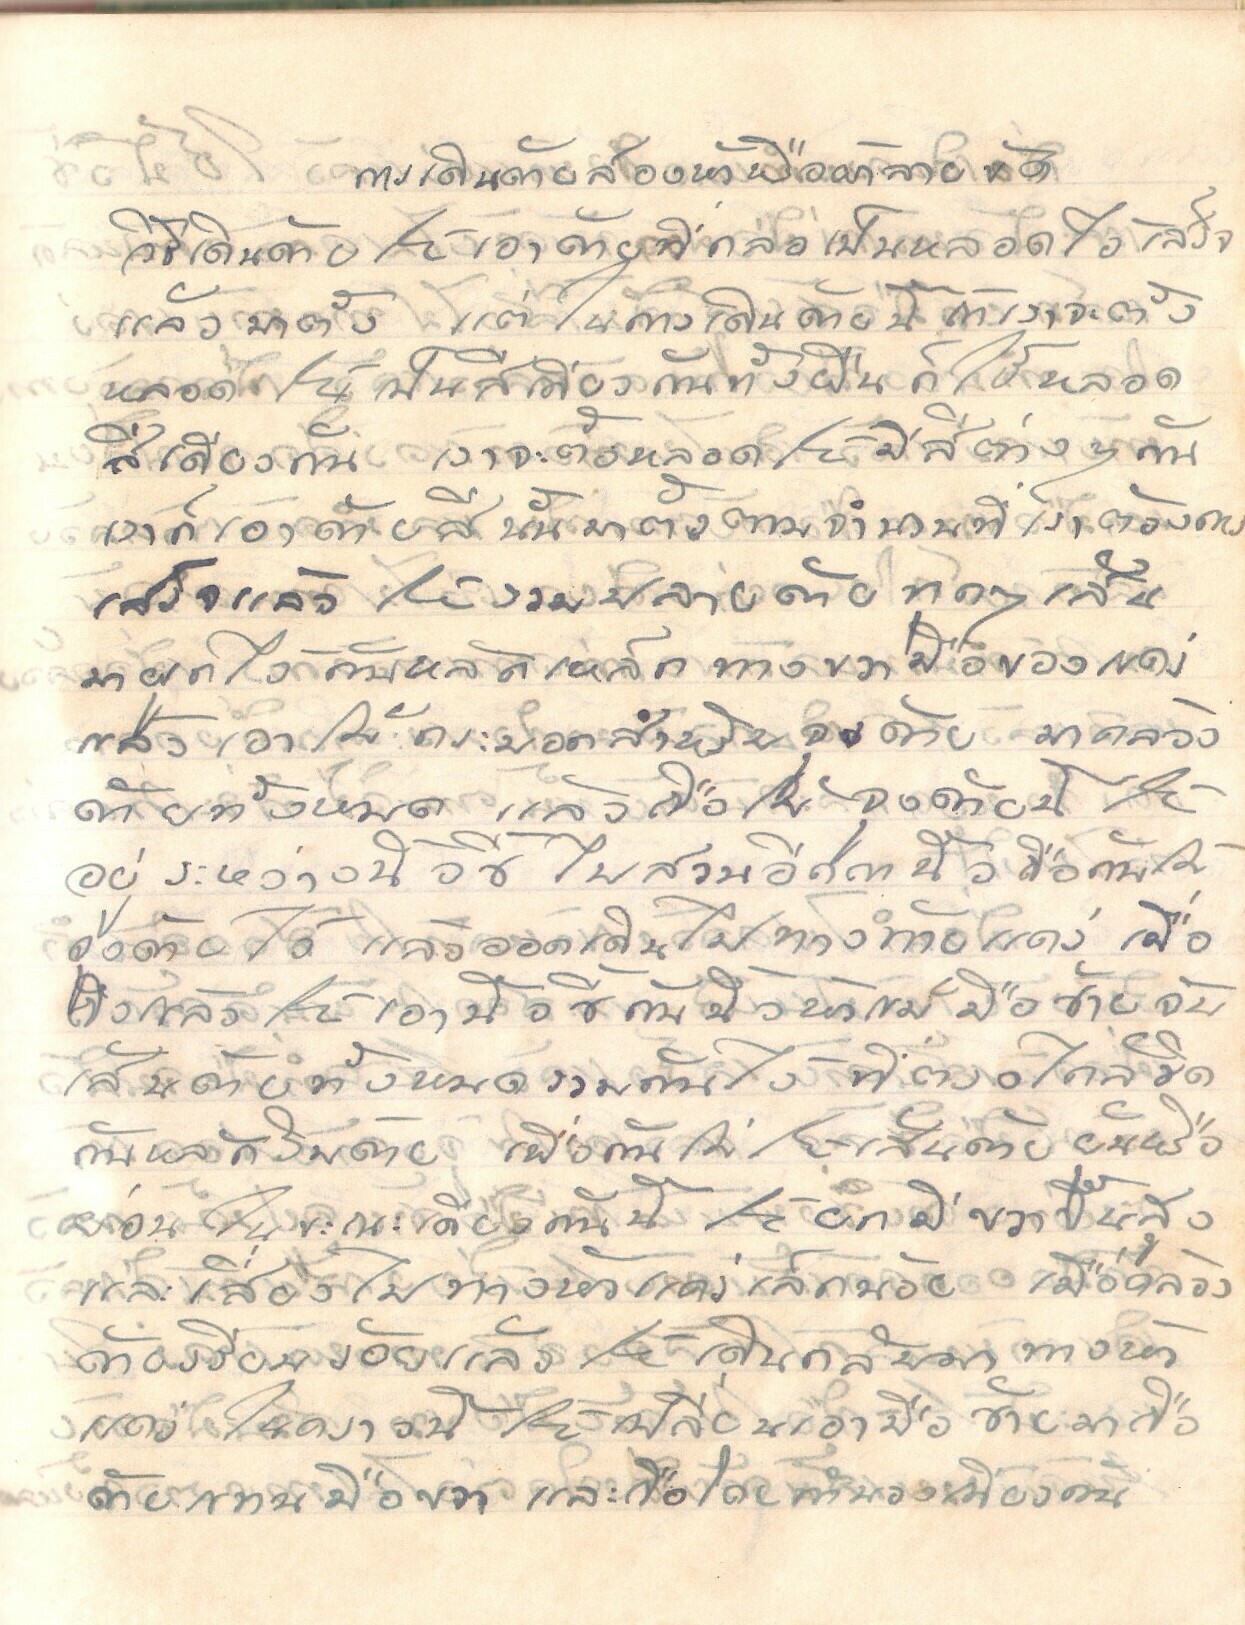 การเดินด้ายสองหัวหรือผ้าลายขัด
วิธีเดินด้าย ให้เอาด้ายที่กล่อเป็นหลอดไว้เสร็จ
แล้วมาตั้ง แต่ในการเดินด้ายนี้ ถ้าเราจะตั้ง
หลอด ให้เป็นสีเดียวกันทั้งผืน ก็ใช้หลอด
สีเดียวกัน เราจะตั้งหลอดให้มีสีต่าง ๆ กัน
เราก็เอาด้ายสีนั้นมาตั้งตามจำนวนที่เราต้องการ
เสร็จแล้ว ให้รวมปลายด้ายทุกๆ เส้น
มาผูกไว้กับหลักเหล็กทางขวามือของแคร่
แล้วเอาไม้กระบอกสำหรับจูงด้าย มาคล้อง
ด้ายทั้งหมด แล้วถือไม้จูงด้ายนี้ ให้
อยู่ระหว่างนิ้วชี้ ไปสวนอีก นิ้วถือกันไม้
จูงด้ายไว้ แล้วออกเดินไปทางท้ายแคร่ เมื่อ
ถึงแล้ว ให้เอานิ้วชี้กับนิ้วหัวแม่มือซ้ายจับ
เส้นด้ายทั้งหมดรวมกันไว้ ที่ตรงใกล้ชิด
กับหลักริมด้าย เพื่อกันไม่ให้เส้นด้ายยันหรือ
หย่อน ในขะณะเดียวกันนี้ ให้ยกมือขวาขึ้นสูง
และเลี้ยวไปทางหัวแคร่เล็กน้อย เมื่อคล้อง
ด้ายเรียบร้อยแล้ว ให้เดินกลับมาทางหัว
แคร่ ในคราวนี้ ให้เปลี่ยนเอามือซ้ายมาถือ
ด้ายแทนมือขวา และถือโดยทำนองเดียวกัน